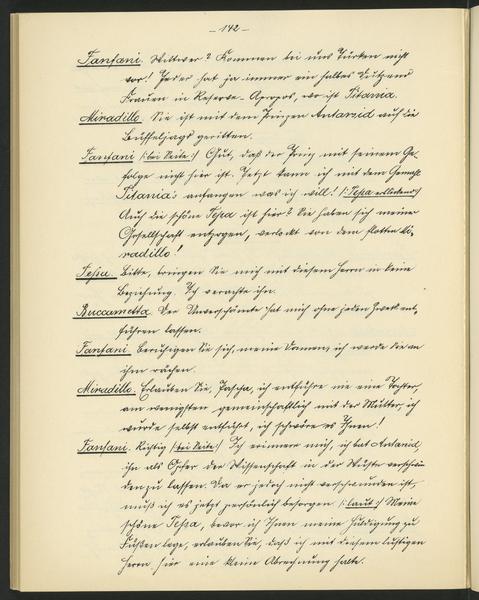 – 142 –
Fanfani. Wittwer? Kommen bei uns Türken nicht
vor! Jeder hat ja immer ein halbes Dutzend
Frauen in Reserve – Apropos, wo ist Titania.
Miradillo. Sie ist mit dem Prinzen Antarsid auf die
Büffeljagd geritten.
Fanfani (: bei Seite :) Gut, daß der Prinz mit seinem Ge-
folge nicht hier ist. Jetzt kann ich mit dem Gemahl
Titania's anfangen was ich will! (: Tessa erblickend :)
Auch die schöne Tessa ist hier? Sie haben sich meiner
Gesellschaft entzogen, verlockt von dem flotten Mi-
radillo!
Tessa. Bitte, bringen Sie mich mit diesem Herrn in keine
Beziehung. Ich verachte ihn.
Buccametta. Der Unverschämte hat mich ohne jeden Zweck ent-
führen lassen.
Fanfani. Beruhigen Sie sich, meine Damen, ich werde Sie an
ihm rächen.
Miradillo. Erlauben Sie, Pascha, ich entführe nie eine Tochter,
am wenigsten gemeinschaftlich mit der Mutter, ich
wurde selbst entführt, ich schwöre es Ihnen!
Fanfani. Richtig (: bei Seite :) Ich erinnere mich, ich bat Antarsid,
ihn als Opfer der Wissenschaft in der Wüste verschwin
den zu lassen. Da er jedoch nicht verschwunden ist,
muß ich es jetzt persönlich besorgen (: laut :) Meine
schöne Tessa, bevor ich Ihnen meine Huldigung zu
Füßen lege, erlauben Sie, daß ich mit diesem lustigen
Herrn hier eine kleine Abrechnung halte.